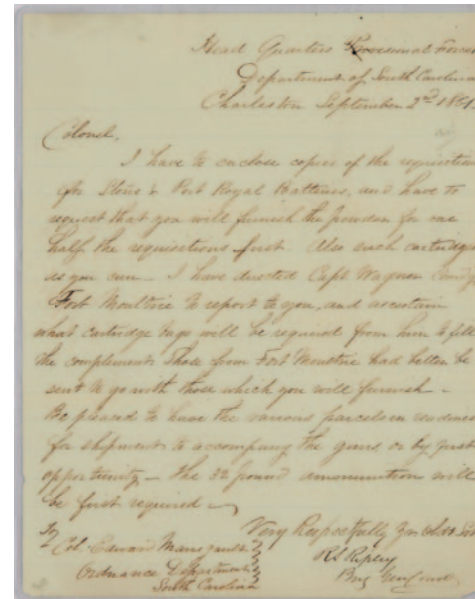 Head Quarters Provisional Forces
Department of South Carolina
Charleston September 2nd 1861
Colonel,
I have to enclose copies of the requisitions
for Stono & Port Royal Batteries, and have to
request that you will furnish the powder for one
half the requisitions first. Also such cartridges
as you can – I have directed Capt Wagner
Fort Moultrie to report to you, and ascertain
what cartridge bags will be required from him to fill
the complement. Those from Fort Moultrie had better be
sent to go with those which you will furnish –
Be pleased to have the various parcels in readiness
for shipment to accompany the guns or by first
opportunity – The 32 pound ammunition will
be first required –
Very Respectfully Yr Obdt Svt
RS Ripley
Brig Gen Comd
To
Col. Edward Manigault
Ordnance Department
South Carolina